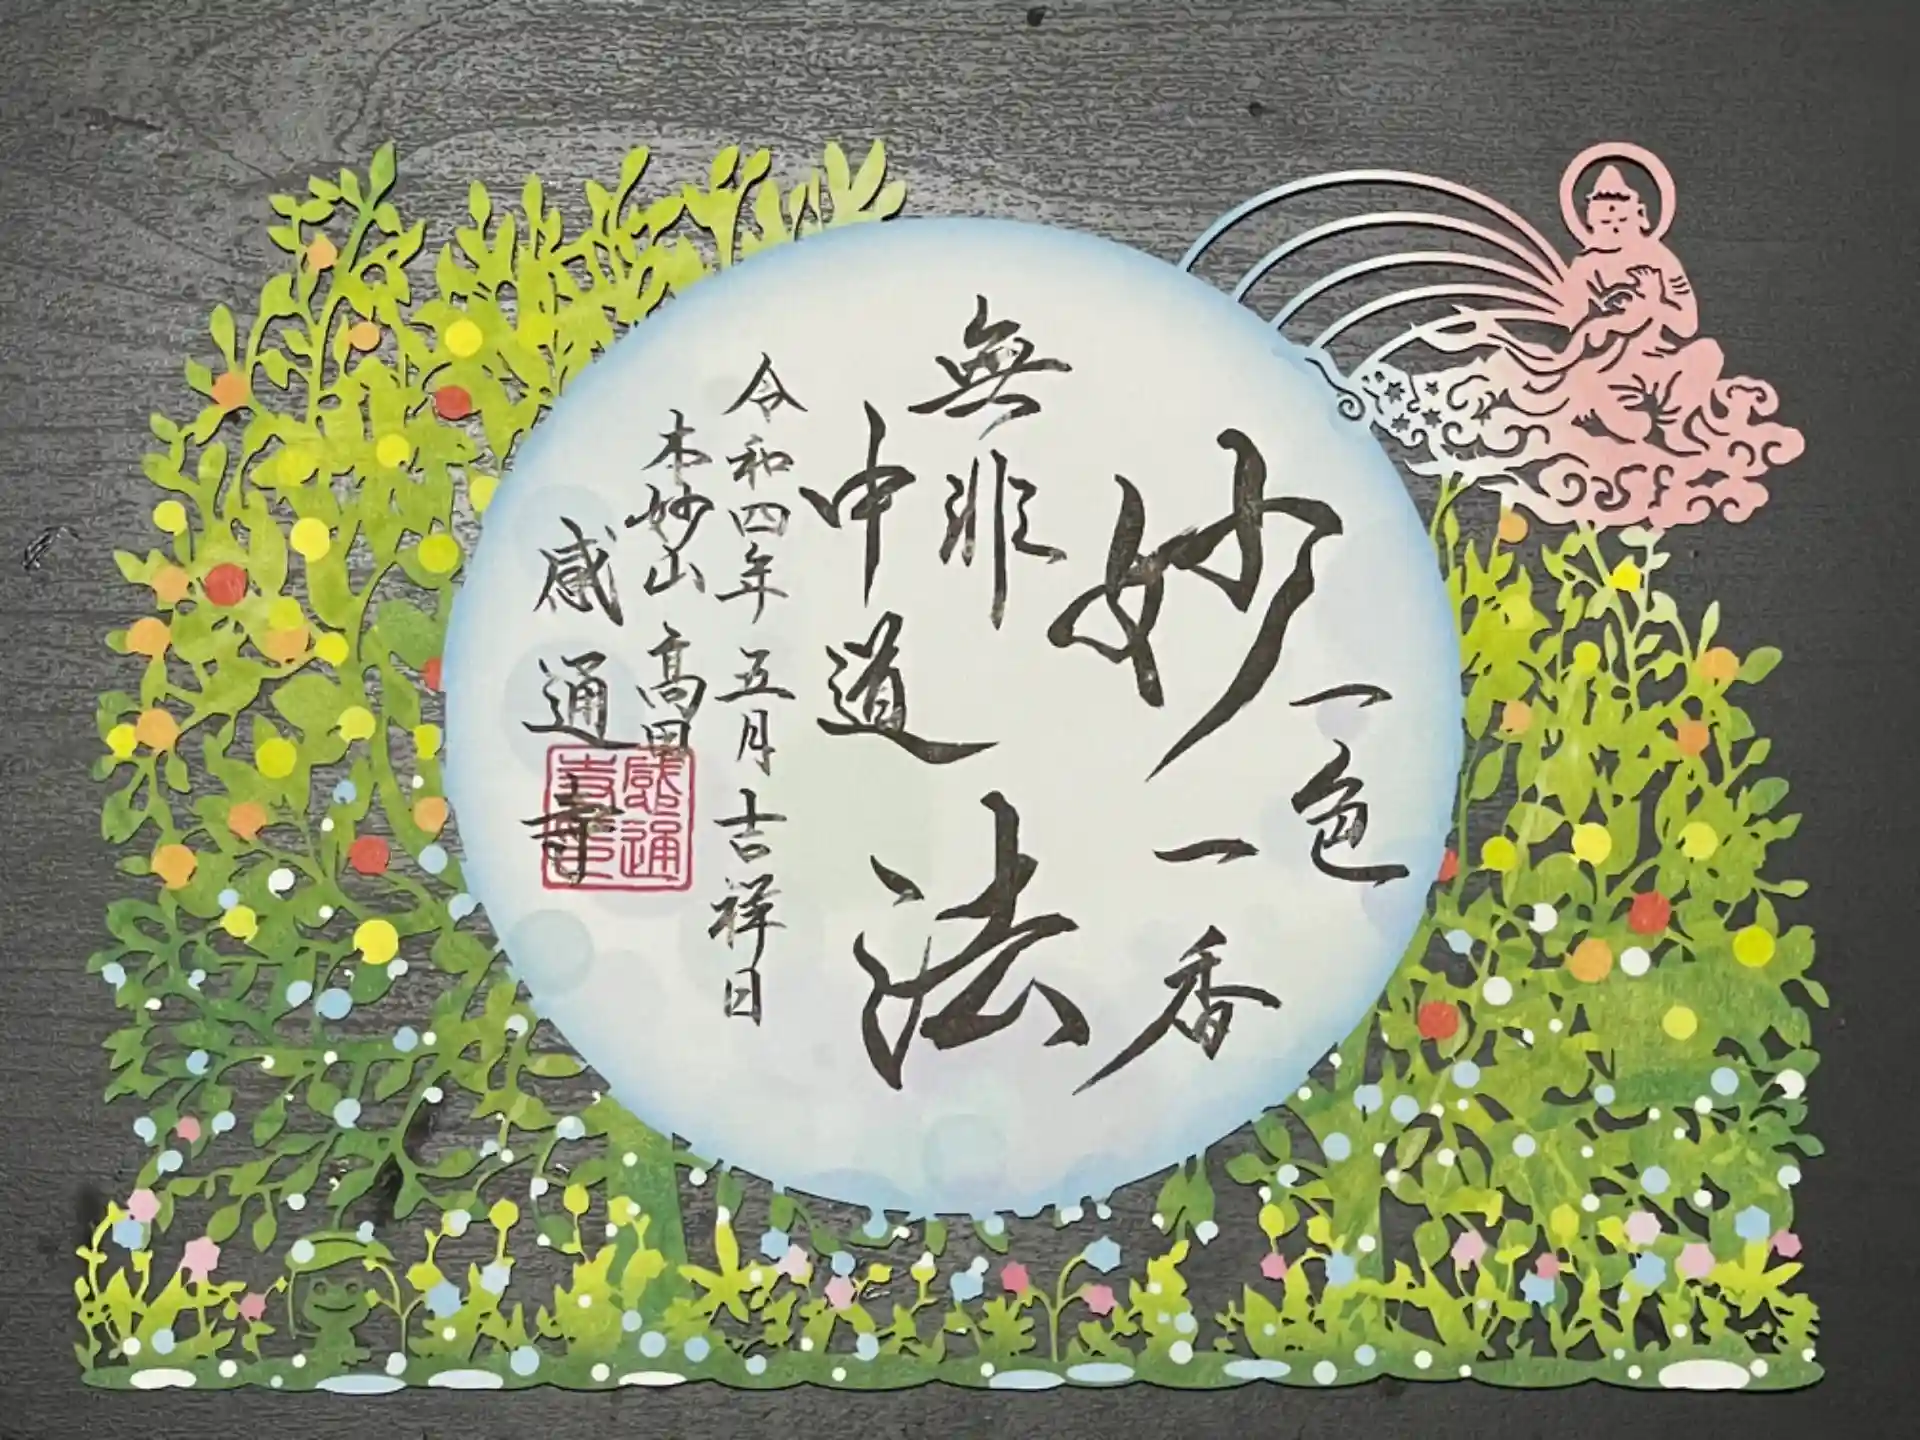 一色
妙
一香
無非
法
中道
令和四年五月吉祥日
本妙山 髙田
感通寺
感通
寺印